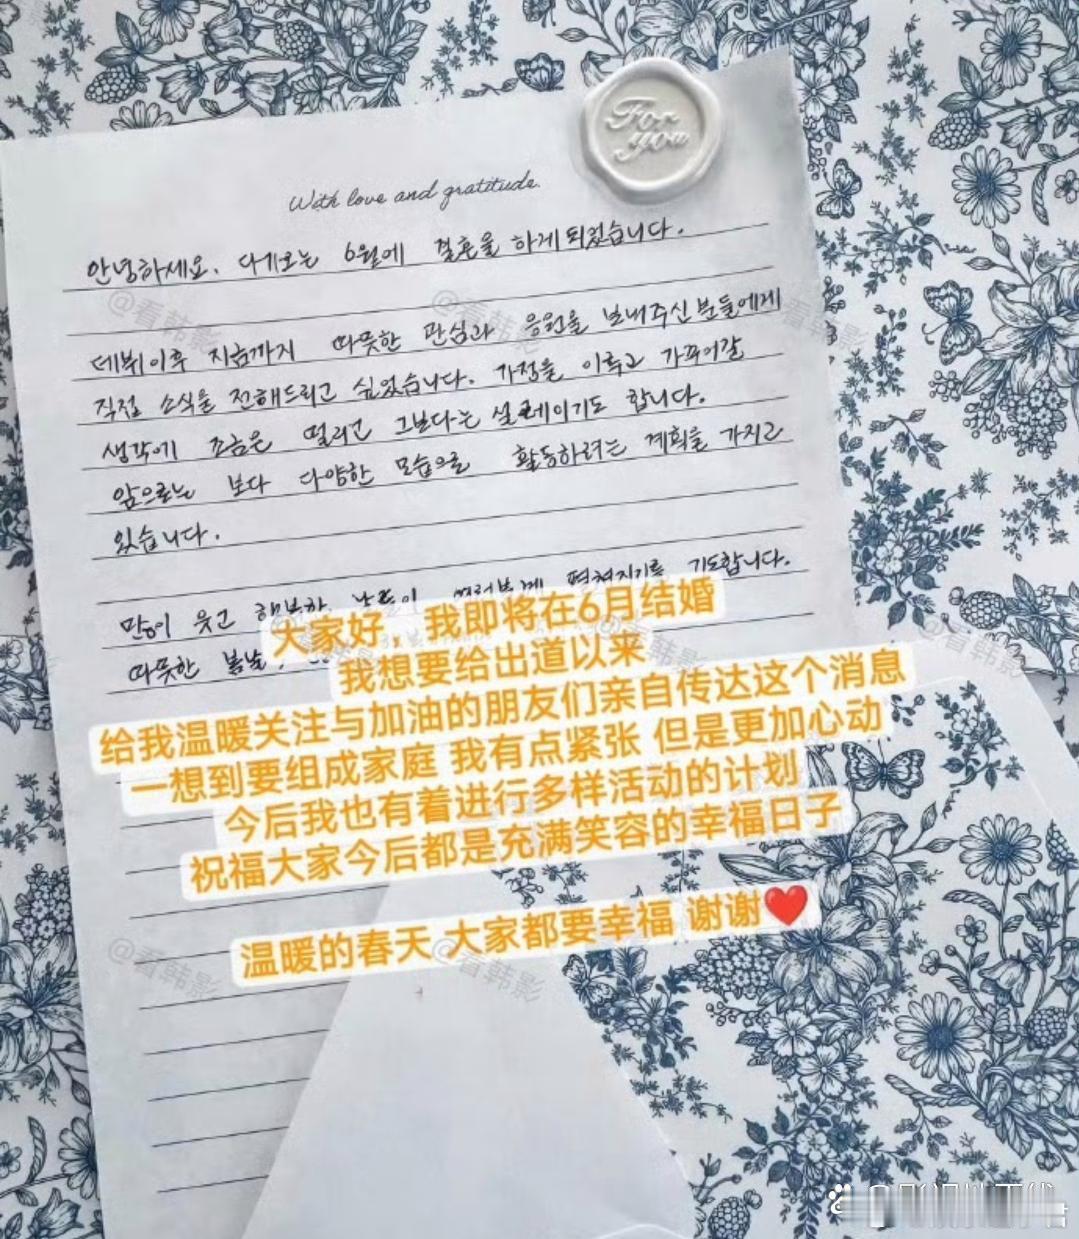 For
you
With love and gratitude.
안녕하세요. 다름아닌 6월에 결혼을 하게 되었습니다.
데뷔이후 지금까지 따뜻한 관심과 응원을 보내주신 분들에게
직접 소식을 전해드리고 싶었습니다. 가정을 이루고 가꾸어갈
생각에 조금은 떨리고 그보다는 설레이기도 합니다.
앞으로는 보다 다양한 모습으로 활동하려는 계획을 가지고
있습니다.
많이 웃고 기도합니다.
따뜻한 봄날
大家好，我即将在6月结婚
我想要给出道以来
给我温暖关注与加油的朋友们亲自传达这个消息
一想到要组成家庭 我有点紧张 但是更加心动
今后我也有着进行多样活动的计划
祝福大家今后都是充满笑容的幸福日子
温暖的春天 大家都要幸福 谢谢❤️
@看韩影